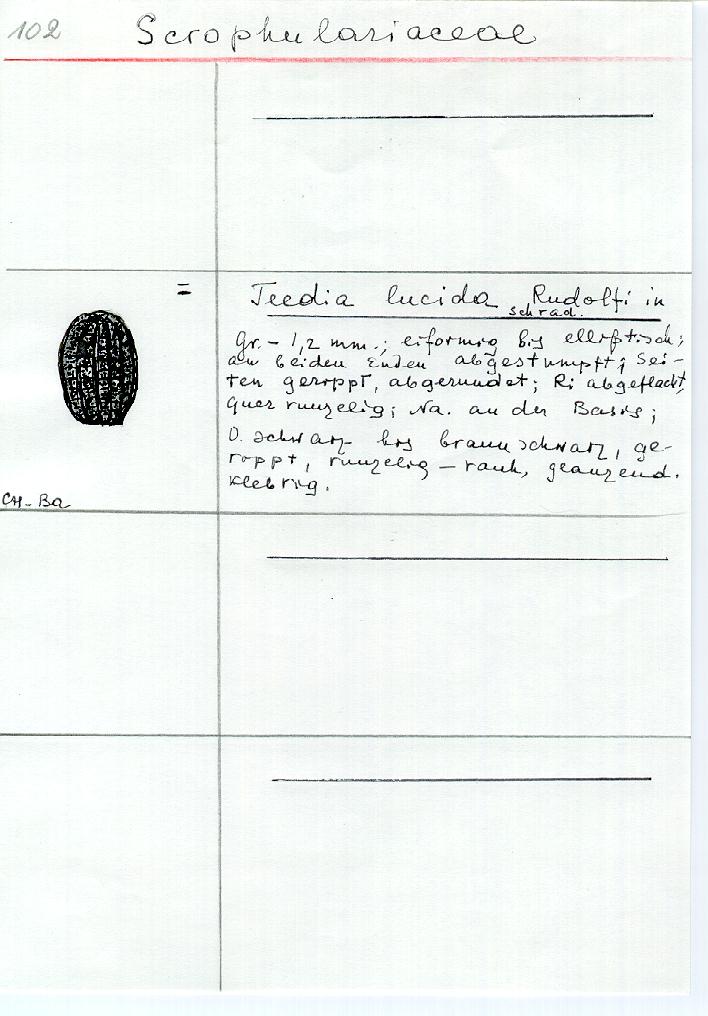 102 Scrophulariaceae
= Teedia lucida Rudolfi in
Schrad.
Gr. - 1,2 mm.; eiformig bis elliptisch;
an beiden Enden abgestumpft; Sei-
ten geroppt, abgerundet; Ri abgeflacht,
quer runzelig; Na. an der Basis;
O. schwarz bis braunschwarz, ge-
roppt, runzelig - rauh, glänzend.
Klebrig.
CH-Ba